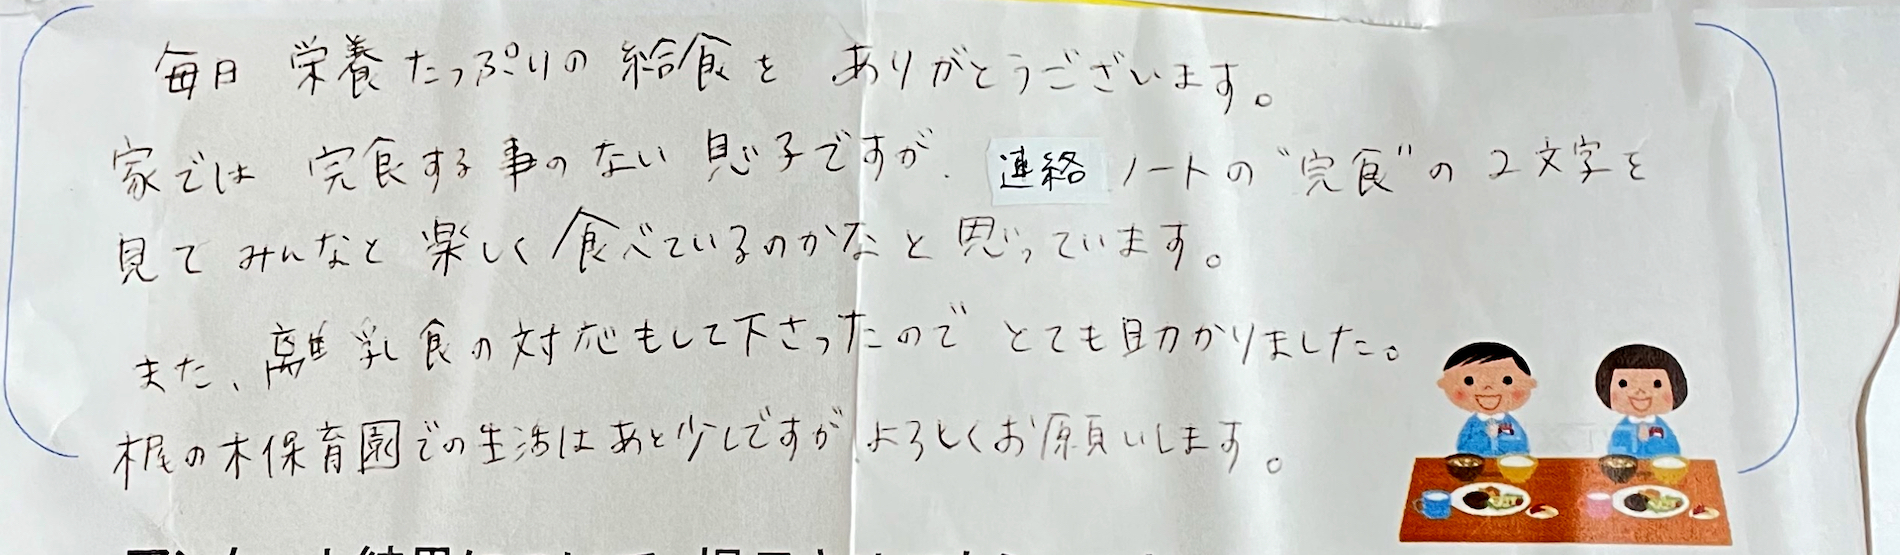 毎日 栄養たっぷりの給食を ありがとうございます。
家では 完食する事のない 息子ですが、連絡ノートの“完食”の2文字を
見て みんなと 楽しく食べているのかなと 思っています。
また、離乳食の対応もして下さったので とても助かりました。
梶の木保育園での生活はあと少しですが、よろしくお願いします。